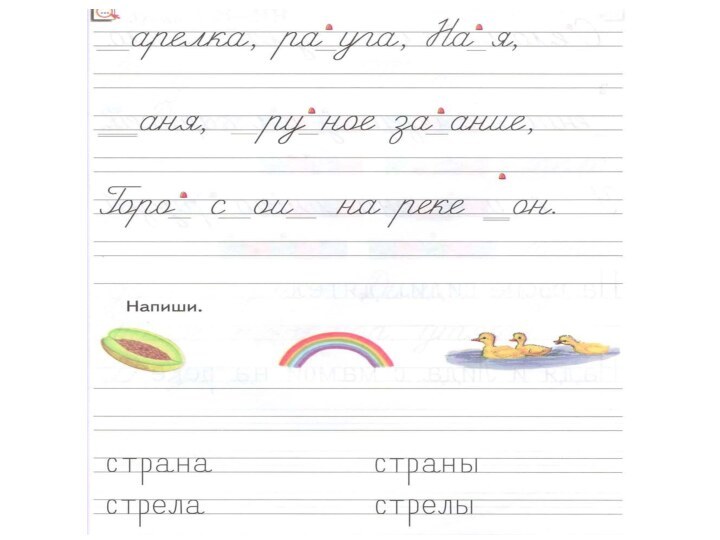 __арелка, ра_уга, На_я,
__аня, _ру_ное за_ание,
Горо_ с_ои_ на реке _он.
Напиши.
страна страны
стрела стрелы